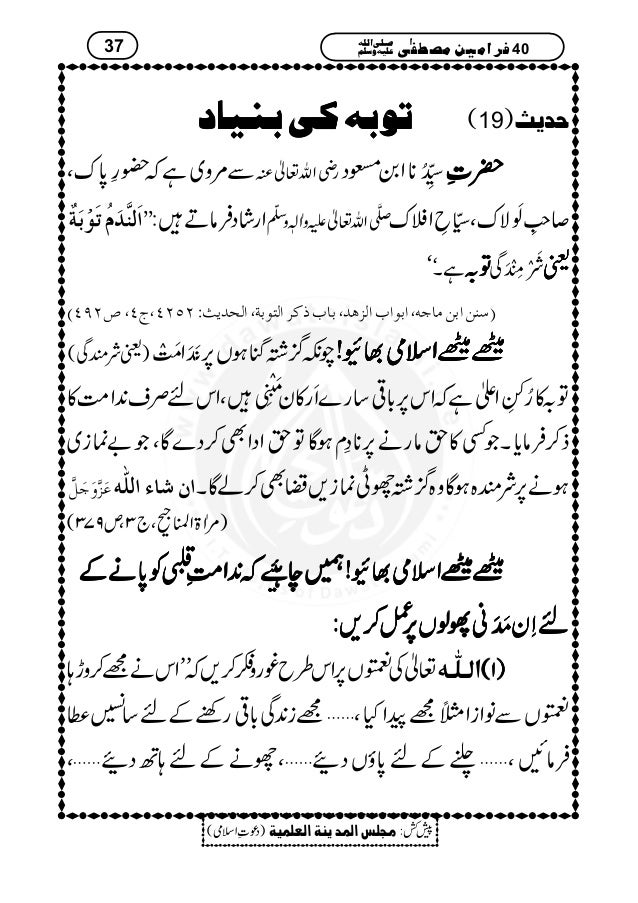 37
40 فرامین مصطفٰی صلی اللہ علیہ وسلم
حدیث (19) توبہ کی بنیاد
حضرتِ سیِّدُنا ابن مسعود رضی اللہ تعالیٰ عنہ سے مروی ہے کہ حضورِ پاک،
صاحبِ لَولاک، سیّاحِ افلاک صلَّی اللہ تعالیٰ علیہ والہٖ وسلَّم ارشاد فرماتے ہیں: ’’اَلنَّدَمُ تَوْبَةٌ
یعنی شَرْمِنْدَگی توبہ ہے۔‘‘
(سنن ابن ماجه، ابواب الزهد، باب ذكر التوبة، الحديث: ٤٢٥٢، ج٤، ص٤٩٢)
میٹھے میٹھے اسلامی بھائیو! چونکہ گزشتہ گناہوں پر نَدَامَتْ (یعنی شرمندگی)
توبہ کا رُکنِ اعلیٰ ہے کہ اس پر باقی سارے اَرکان مَبْنِی ہیں، اس لئے صرف ندامت کا
ذکر فرمایا۔ جو کسی کا حق مارنے پر نادِم ہوگا تو حق ادا بھی کردے گا، جو بے نمازی
ہونے پر شرمندہ ہوگا وہ گزشتہ چھوٹی نمازیں قضا بھی کرلے گا۔ ان شاء الله عَزَّوَجَلَّ
(مراٰۃ المناجیح، ج۳، ص۳۷۹)
میٹھے میٹھے اسلامی بھائیو! ہمیں چاہئیے کہ ندامتِ قلبی کو پانے کے
لئے اِن مَدَنی پھولوں پر عمل کریں:
(۱) اللہ تعالیٰ کی نعمتوں پر اس طرح غور و فکر کریں کہ ’’اس نے مجھے کروڑہا
نعمتوں سے نوازا مثلاً مجھے پیدا کیا، ...... مجھے زندگی باقی رکھنے کے لئے سانسیں عطا
فرمائیں، ...... چلنے کے لئے پاؤں دیئے ......، چھونے کے لئے ہاتھ دیئے ......،
پیش کش: مجلس المدينة العلمية (دعوتِ اسلامی)